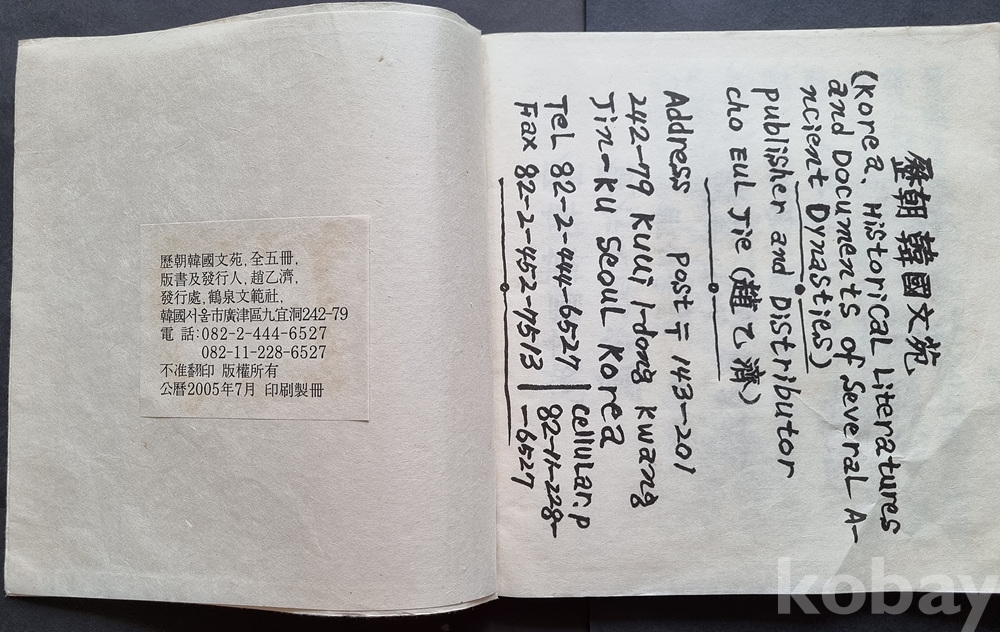 歷朝韓國文苑, 全五冊,
版書및發行人, 趙乙濟,
發行處, 鶴泉文範社,
韓國서울市廣津區九宜洞242-79
電 話:082-2-444-6527
082-11-228-6527
不准翻印 版權所有
公曆2005年7月 印刷製冊
歷朝韓國文苑
(Korea. Historical Literatures
and Documents of Several A-
ncient Dynasties)
publisher and Distributor
cho Eul Jie (趙乙濟)
Address post〒 143-201
242-79 Kuui 1-dong Kwang
Jin-Ku Seoul Korea
Tel 82-2-444-6527 | cellular.p
82-11-228-
-6527
Fax 82-2-452-7513
kobay